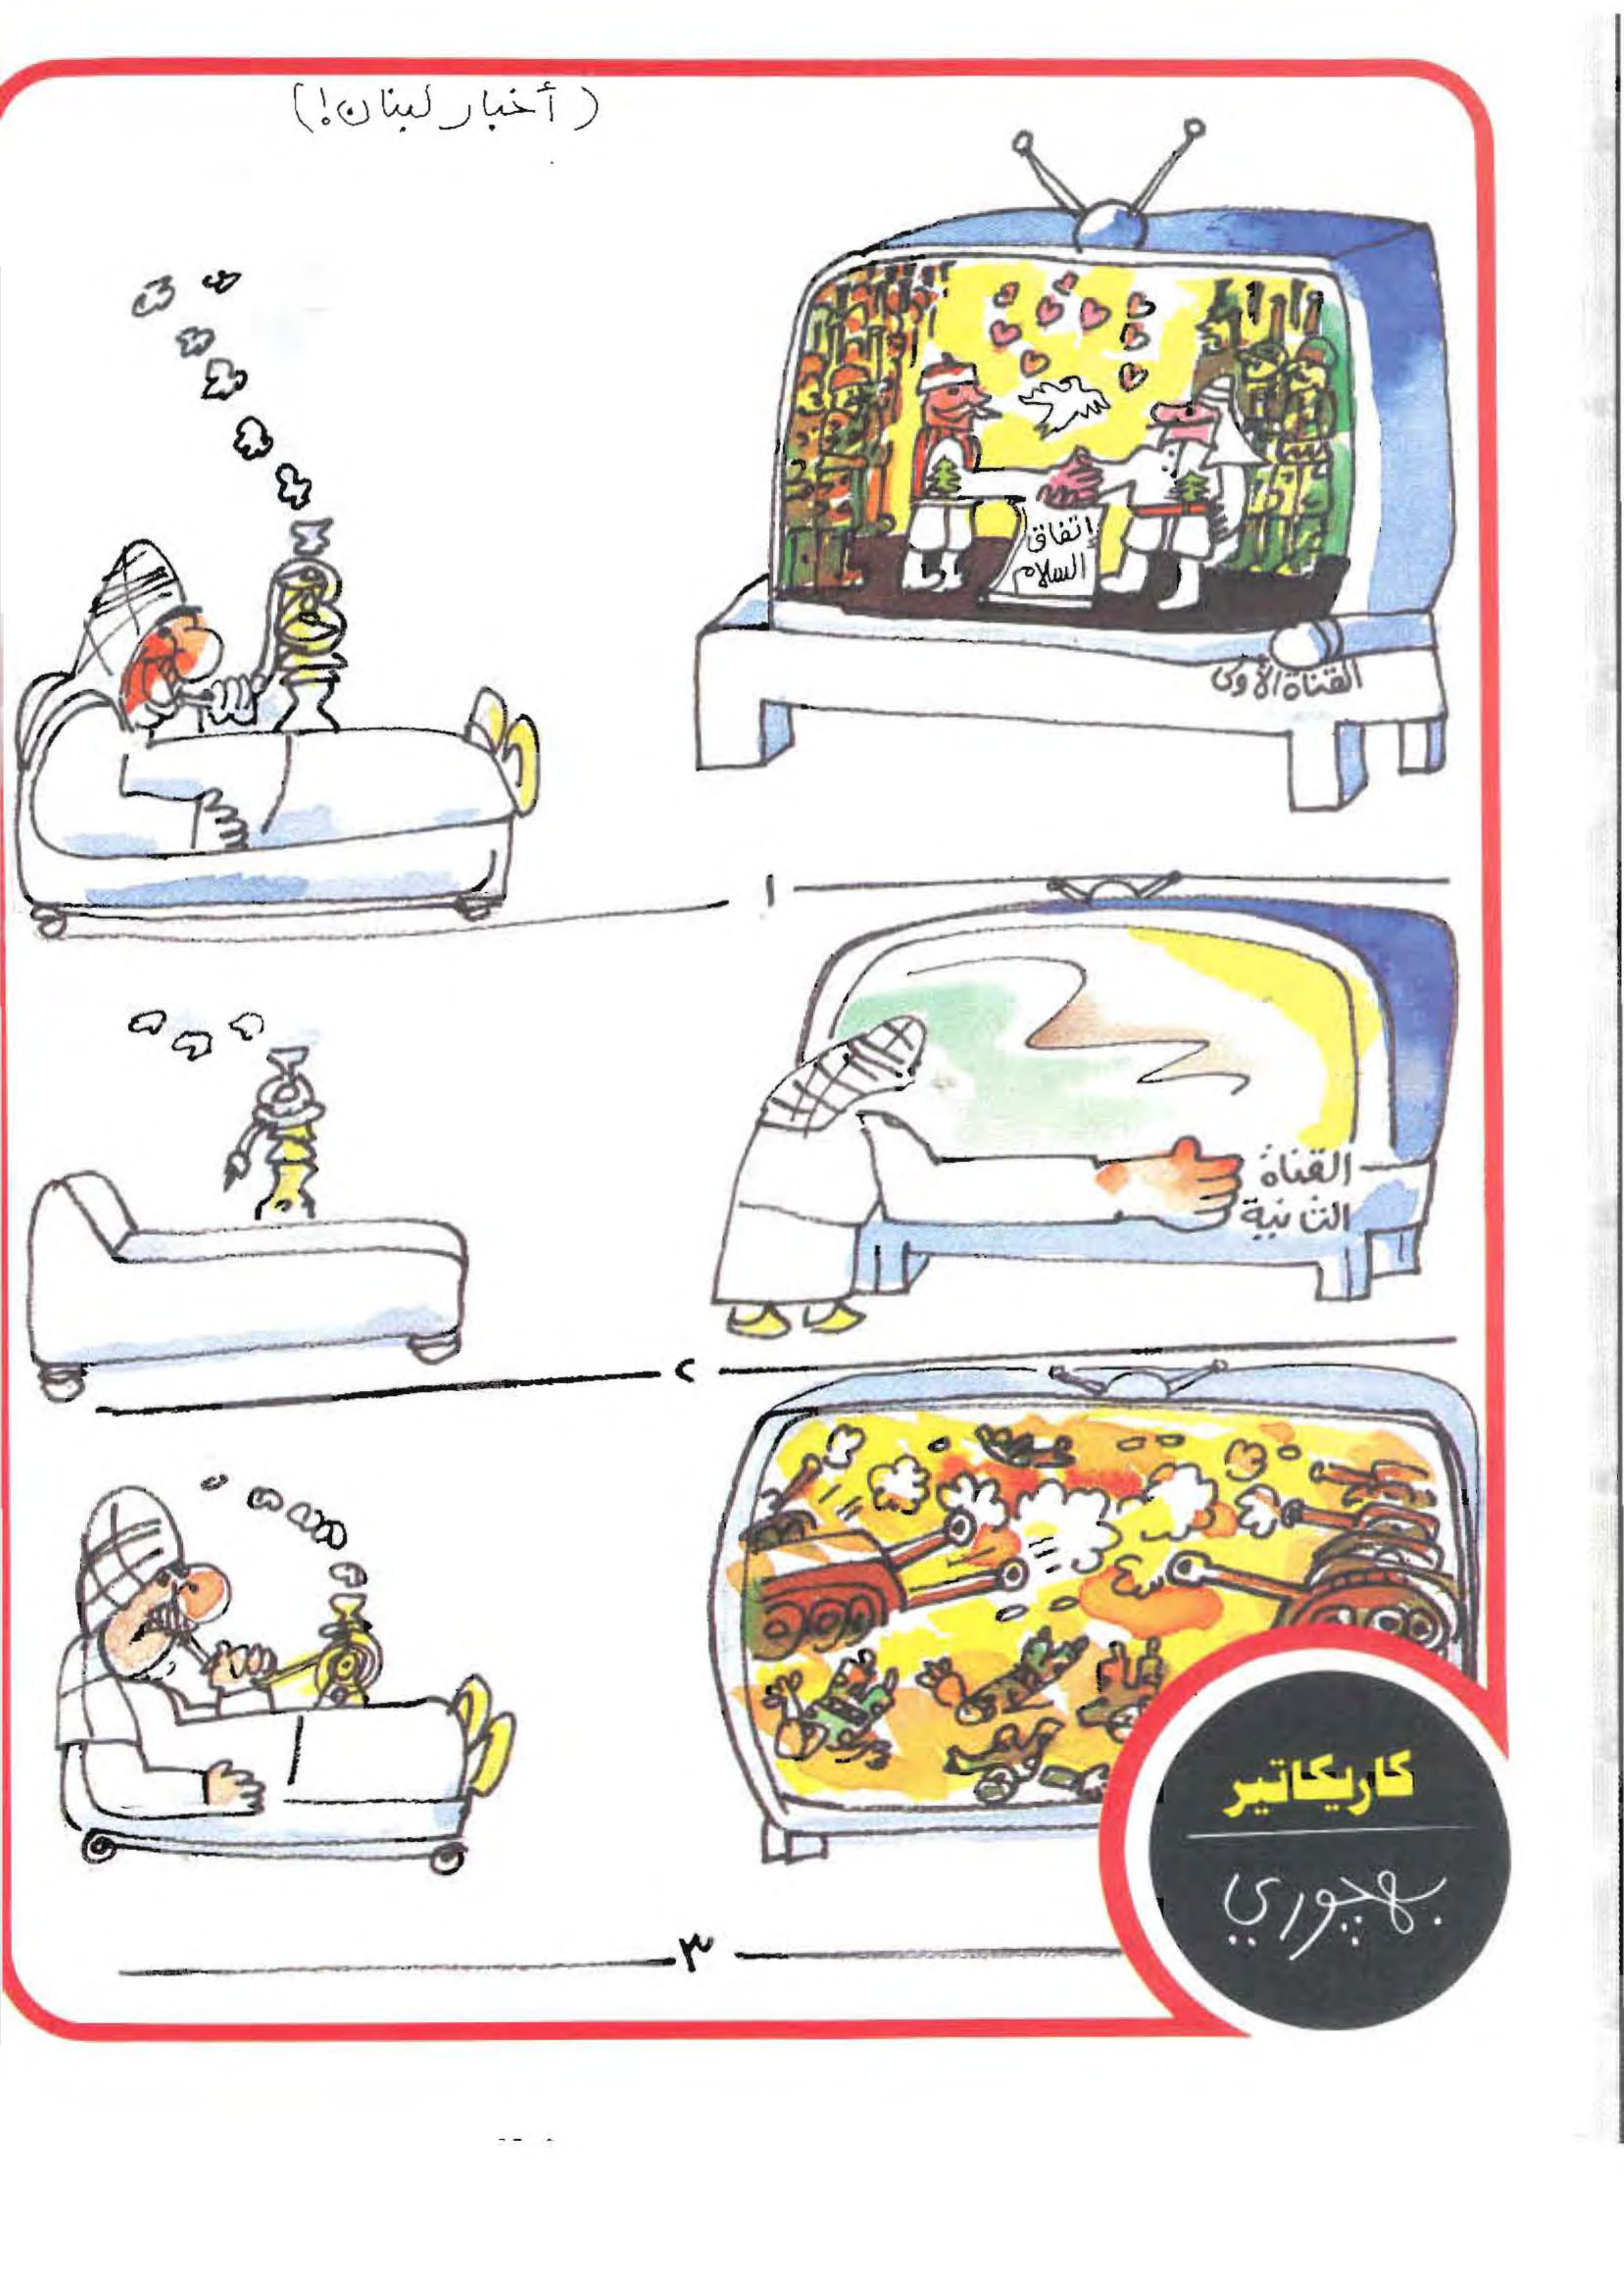 (أخبار لبنان!)
اتفاق
السلام
القناة الأولى
١
القناة
الثانية
٢
٣
كاريكاتير
بهجوري